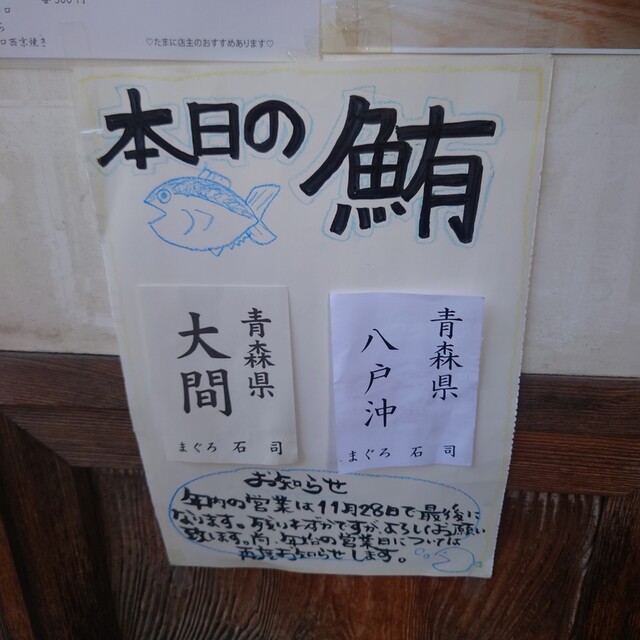 口西京焼き
♡たまに店主のおすすめあります♡
本日の鮪
青森県
大間
まぐろ 石司
青森県
八戸沖
まぐろ 石司
お知らせ
年内の営業は11月28日で最後に
なります。残りわずかですがよろしくお願い
致します。尚、年始の営業日については
再度お知らせします。